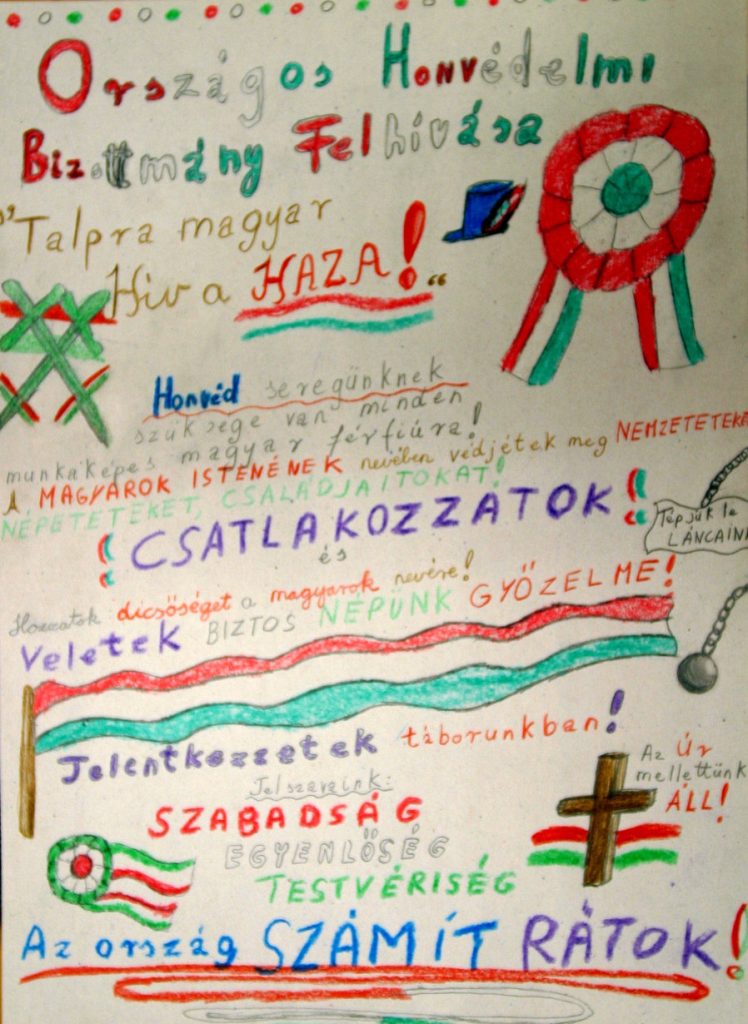 Országos Honvédelmi
Bizottmány Felhívása
"Talpra magyar
Hív a HAZA!"
Honvéd seregünknek
szüksége van minden
munkaképes magyar férfiúra!
A MAGYAROK ISTENÉNEK nevében védjétek meg NEMZETETEKET
NÉPETETEKET, CSALÁDJAITOKAT!
CSATLAKOZZATOK!
és
Tépjük le
LÁNCAINK
Hozzatok dicsőséget a magyarok nevére!
Veletek BIZTOS NÉPÜNK GYŐZELME!
Jelentkezzetek táborunkban!
Jelszavaink:
SZABADSÁG
EGYENLŐSÉG
TESTVÉRISÉG
Az Úr
mellettünk
ÁLL!
Az ország SZÁMÍT RÁTOK!